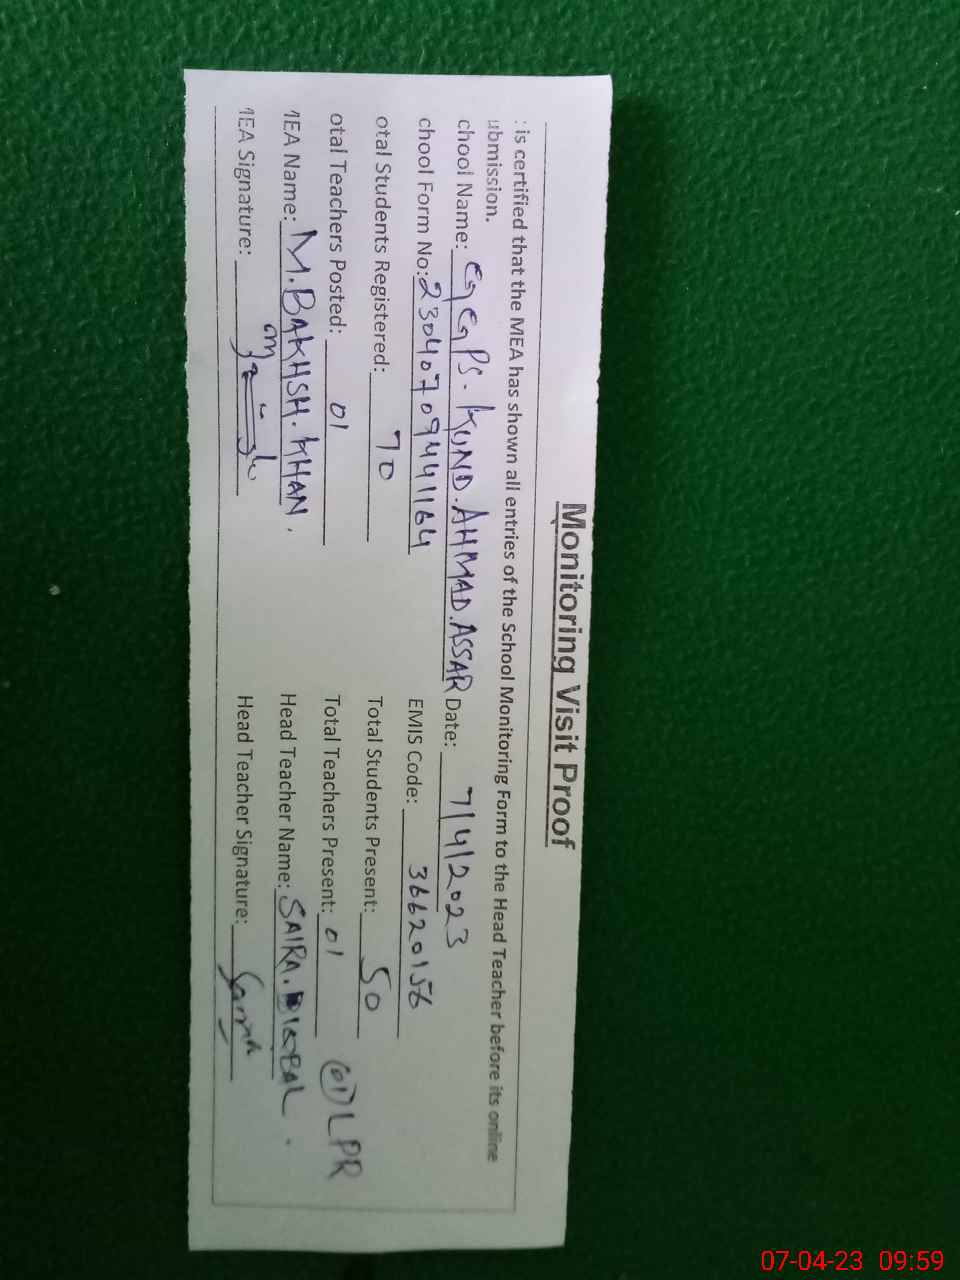 Monitoring Visit Proof
: is certified that the MEA has shown all entries of the School Monitoring Form to the Head Teacher before its online
ubmission.
chool Name: GGPS. KUND. AHMAD. ASSAR Date: 7/4/2023
chool Form No: 23040709441164 EMIS Code: 36620156
otal Students Registered: 70 Total Students Present: 50
otal Teachers Posted: 01 Total Teachers Present: 01 (01) LPR
MEA Name: M. BAKHSH. KHAN. Head Teacher Name: SAIRA. IQBAL.
MEA Signature: Head Teacher Signature:
07-04-23 09:59